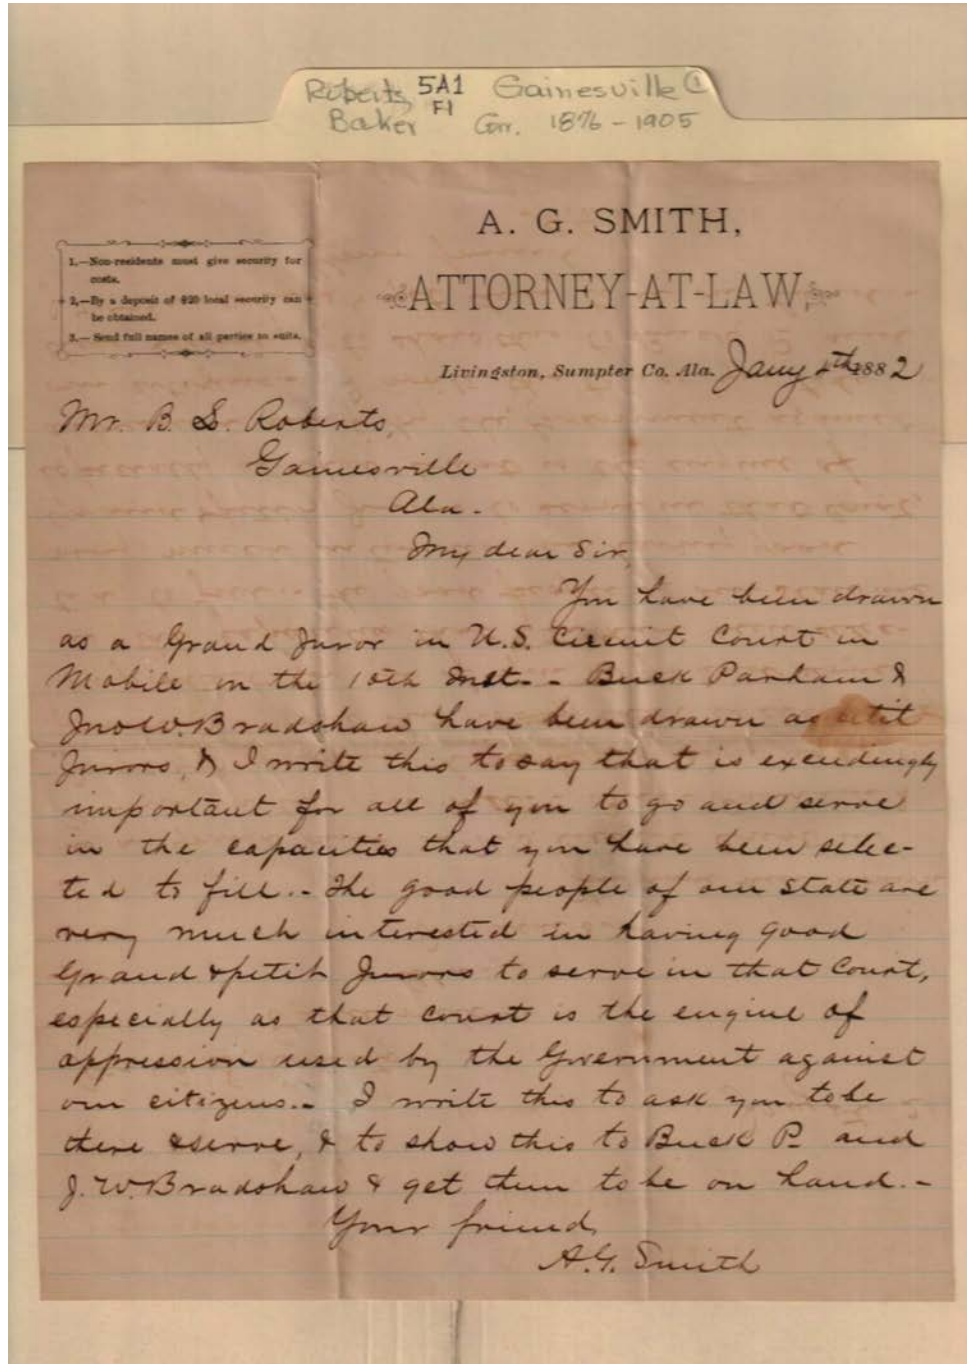 Roberts, 5A1 Gainesville
Baker F1 Corr. 1876-1905
A. G. SMITH,
ATTORNEY-AT-LAW,
1.—Non-residents must give security for
costs.
2.—By a deposit of $20 local security can
be obtained.
3.—Send full names of all parties to suits.
Livingston, Sumpter Co. Ala. Jany 4th 1882
Mr. B. S. Roberts,
Gainesville
Ala.
My dear Sir,
You have been drawn
as a Grand Juror in U.S. Circuit Court in
Mobile on the 10th Inst.- Buck Parham &
Jno W. Bradshaw have been drawn as petit
Jurors, & I write this to say that is exceedingly
important for all of you to go and serve
in the capacities that you have been selec-
ted to fill.- The good people of our State are
very much interested in having good
Grand & petit Jurors to serve in that Court,
especially as that court is the engine of
oppression used by the Government against
our citizens.- I write this to ask you to be
there & serve, & to show this to Buck P- and
J. W. Bradshaw & get them to be on hand.-
Your friend,
A. G. Smith